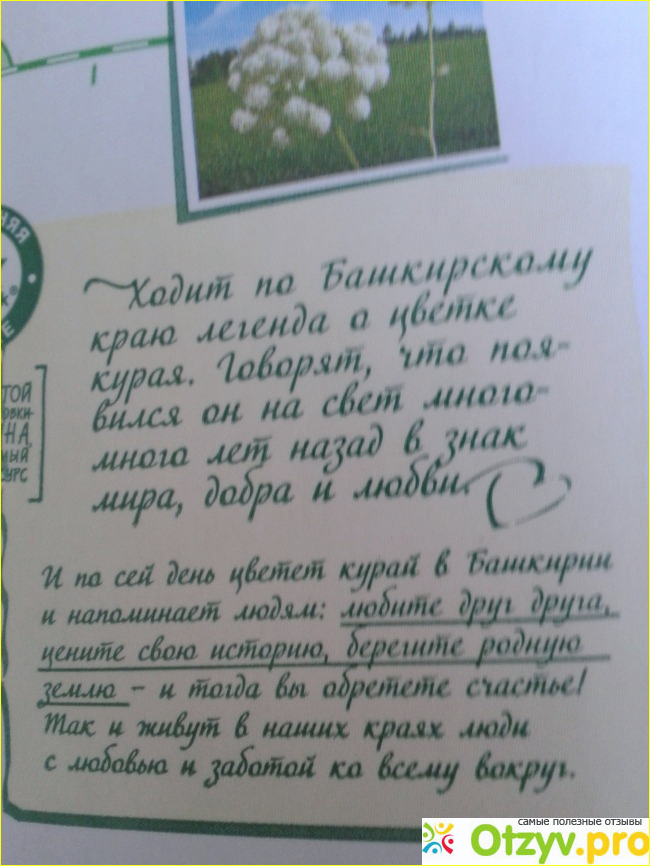 НЯЯ
Ходит по Башкирскому
краю легенда о цветке
курая. Говорят, что поя-
вился он на свет много-
много лет назад в знак
мира, добра и любви.
ТОЙ
ОВКИ-
НА,
МЫЙ
СУРС
И по сей день цветет курай в Башкирии
и напоминает людям: любите друг друга,
цените свою историю, берегите родную
землю – и тогда вы обретете счастье!
Так и живут в наших краях люди
с любовью и заботой ко всему вокруг.
самые полезные отзывы
Otzyv.pro